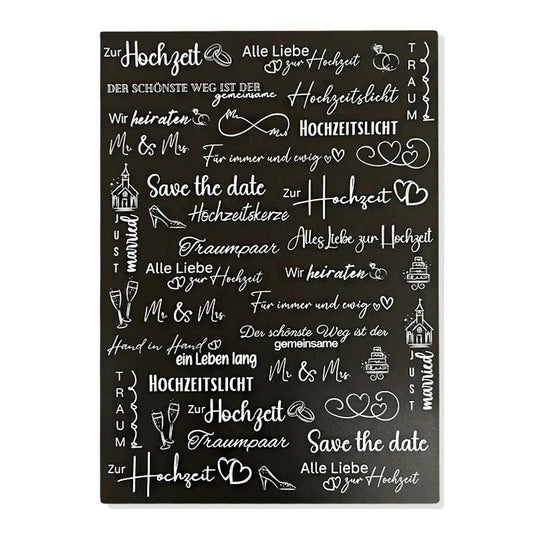 Zur Hochzeit
Alle Liebe
zur Hochzeit
TRAUM
DER SCHÖNSTE WEG IST DER
gemeinsame
Hochzeitslicht
Wir heiraten
Mr. Mrs.
HOCHZEITSLICHT
Mr. & Mrs.
Für immer und ewig
Save the date
Zur Hochzeit
Hochzeitskerze
JUST married
Traumpaar
Alles Liebe zur Hochzeit
Alle Liebe
zur Hochzeit
Wir heiraten
Mr. & Mrs.
Für immer und ewig
Hand in Hand
ein Leben lang
Der schönste Weg ist der
gemeinsame
JUST married
Mr. & Mrs.
TRAUM
HOCHZEITSLICHT
Zur Hochzeit
Traumpaar
Save the date
Zur Hochzeit
Alle Liebe
zur Hochzeit